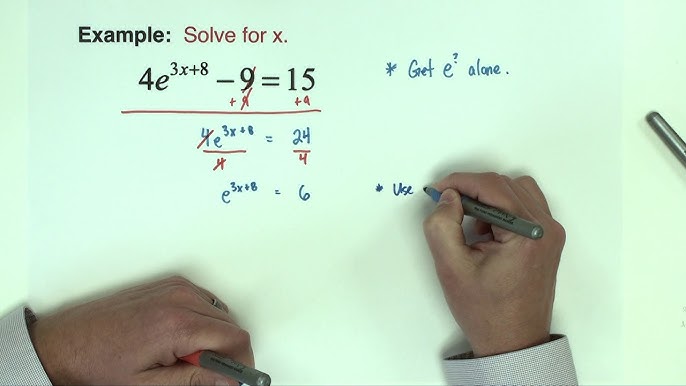 Example: Solve for x.
4e^{3x+8} − 9 = 15
+9 +9
* Get e^? alone.
4e^{3x+8} = 24
4 4
e^{3x+8} = 6
* Use